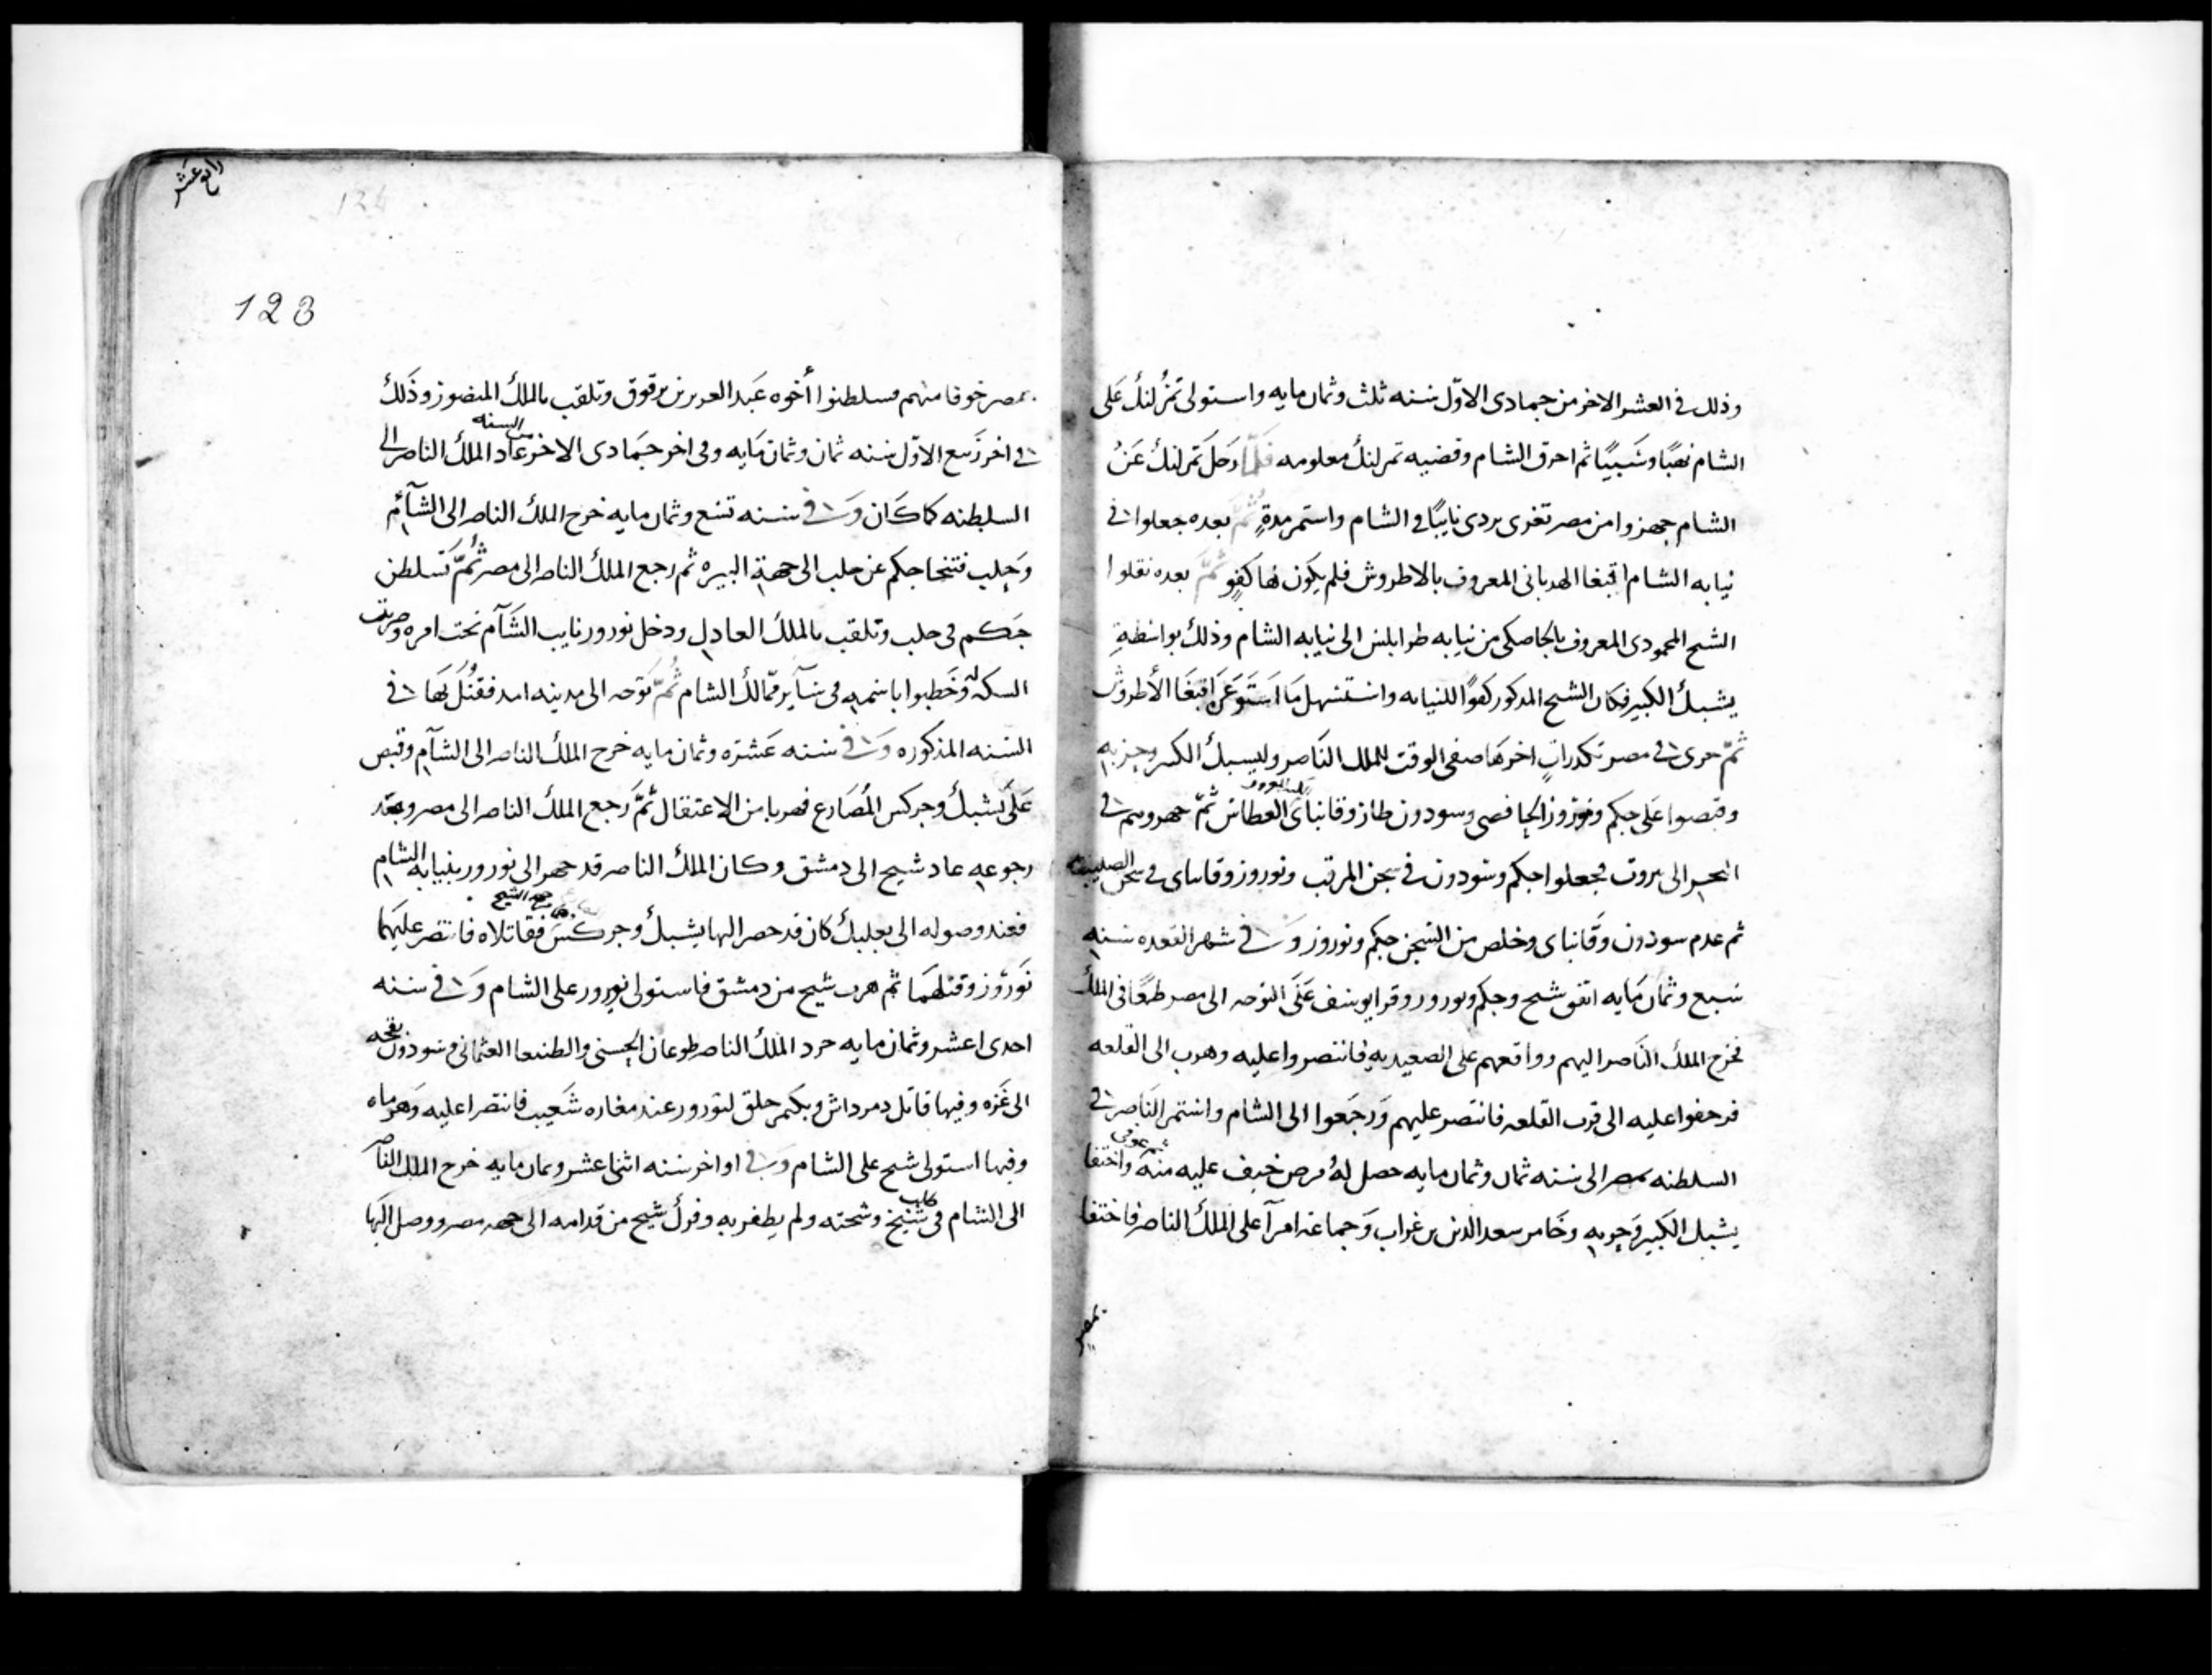 وذلك في العشر الاخر من جمادى الاوّل سنه ثلث وثمان مايه واستولى تمرلنك على
الشام نهبًا وسَبيًا ثم احرق الشام وقضيه تمرلنك معلومه فلمّا رحل تمرلنك عن
الشام جهزوا من مصر تغرى بردى نايبًا في الشام واستمر مدةٍ ثمّ بعده جعلوا في
نيابه الشام اقبغا الهدبانى المعروف بالاطروش فلم يكون لها كفوٍ ثمّ بعده نقلوا
الشيح المحمودى المعروف بالخاصكى من نيابه طرابلس الى نيابه الشام وذلك بواسطةِ
يشبك الكبير فكان الشيح المذكور كفوًا للنيابه واستسهل ما اقبغا الأطروش
ثمّ جرى في مصر تكدراتٍ اخرها صفى الوقت للملك الناصر وليسبك الكبير وحزبه
وقبصوا على جكم ونوروز الحافصى وسودون طاز وقانباى العطاس ثمّ جهروهم في
البحر الى بروت فجعلوا جكم وسودون في سجن المرقب ونوروز وقانباى في سجن الصليبه
ثم عدم سودون وقانباى وخلص من السجن جكم ونوروز وفي شهر القعده سنه
سبع وثمان مايه اتفق شيح وجكم ونورور وقرا يوسف على التوجه الى مصر طمعًا في الملك
فخرج الملك الناصر اليهم وواقعهم على الصعيديه فانتصروا عليه وهرب الى القلعه
فرحفوا عليه الى قرب القلعه فانتصر عليهم ورجعوا الى الشام واستمر الناصر في
السلطنه بمصر الى سنه ثمان وثمان مايه حصل له مرض خيف عليه منه ثم عوفى واختفا
يشبك الكبير وحزبه وخامر سعد الدين بن غراب وجماعه امرآ على الملك الناصر فاختفا
بمصر
رابع عشر
124
123
بمصر خوفا منهم فسلطنوا أخوه عبد العزيز بن برقوق وتلقب بالملك المنصور وذلك
في اخر ربيع الاوّل سنه ثمان وثمان مايه وفى اخر جمادى الاخر من السنه عاد الملك الناصر الى
السلطنه كما كان وفي سنه تسع وثمان مايه خرج الملك الناصر الى الشآم
وحلب فتنحا جكم عن حلب الى جهة البيره ثم رجع الملك الناصر الى مصر ثمّ تسلطن
جكم فى حلب وتلقب بالملك العادل ودخل نورور نايب الشآم تحت امره وضربت
السكه له وخطبوا باسمه فى سآير ممالك الشام ثمّ توجه الى مدينه امد فقتل بها في
السنه المذكوره وفي سنه عشره وثمان مايه خرج الملك الناصر الى الشآم وقبص
على يشبك وجركس المصارع فهربا من الاعتقال ثمّ رجع الملك الناصر الى مصر وبعد
رجوعه عاد شيح الى دمشق وكان الملك الناصر قد جهر الى نورور بنيابه الشام
فعند وصوله الى بعلبك كان قد حصر اليها يشبك وجركس من جهه الشيح فقاتلاه فانتصر عليهما
نوروز وقتلهما ثم هرب شيح من دمشق فاستولى نورور على الشام وفي سنه
احدى اعشر وثمان مايه جرد الملك الناصر طوغان الحسنى والطنبعا العثمانى وسودون بقجه
الى غزه وفيها قاتل دمرداش وبكتمر جلق لنورور عند مغاره شعيب فانتصرا عليه وهزماه
وفيها استولى شيح على الشام وفي اواخر سنه اثنا عشر وثمان مايه خرج الملك الناصر
الى الشام فى طلب شيخ وشحته ولم يطفر به وفرك شيح من قدامه الى جهه مصر ووصل اليها